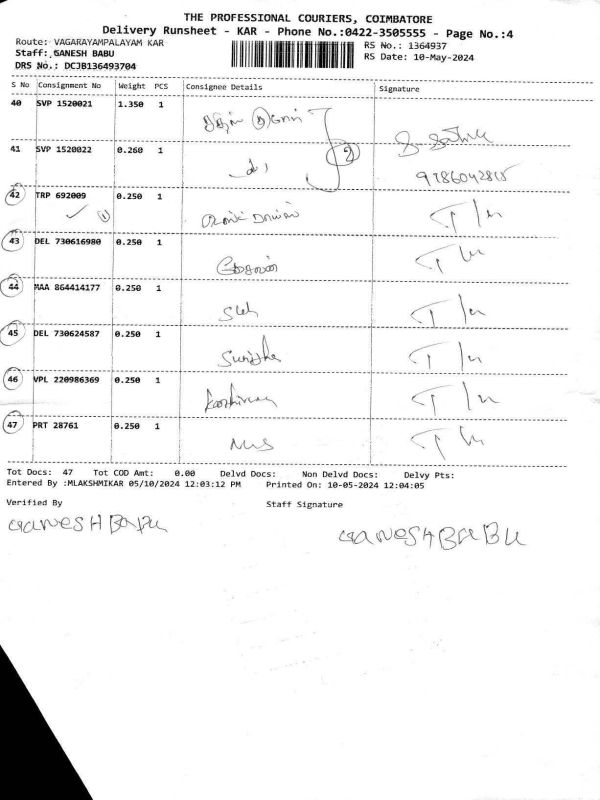 THE PROFESSIONAL COURIERS, COIMBATORE
Delivery Runsheet - KAR - Phone No.:0422-3505555 - Page No.:4
Route: VAGARAYAMPALAYAM KAR
Staff: GANESH BABU
DRS No.: DCJB136493704
RS No.: 1364937
RS Date: 10-May-2024
S No Consignment No Weight PCS Consignee Details Signature
40 SVP 1520021 1.350 1
41 SVP 1520022 0.260 1 2
42 TRP 692009 0.250 1
43 DEL 730616980 0.250 1
44 MAA 864414177 0.250 1
45 DEL 730624587 0.250 1
46 VPL 220986369 0.250 1
47 PRT 28761 0.250 1
Tot Docs: 47 Tot COD Amt: 0.00 Delvd Docs: Non Delvd Docs: Delvy Pts:
Entered By :MLAKSHMIKAR 05/10/2024 12:03:12 PM Printed On: 10-05-2024 12:04:05
Verified By Staff Signature
GANESH BABU GANESH BABU